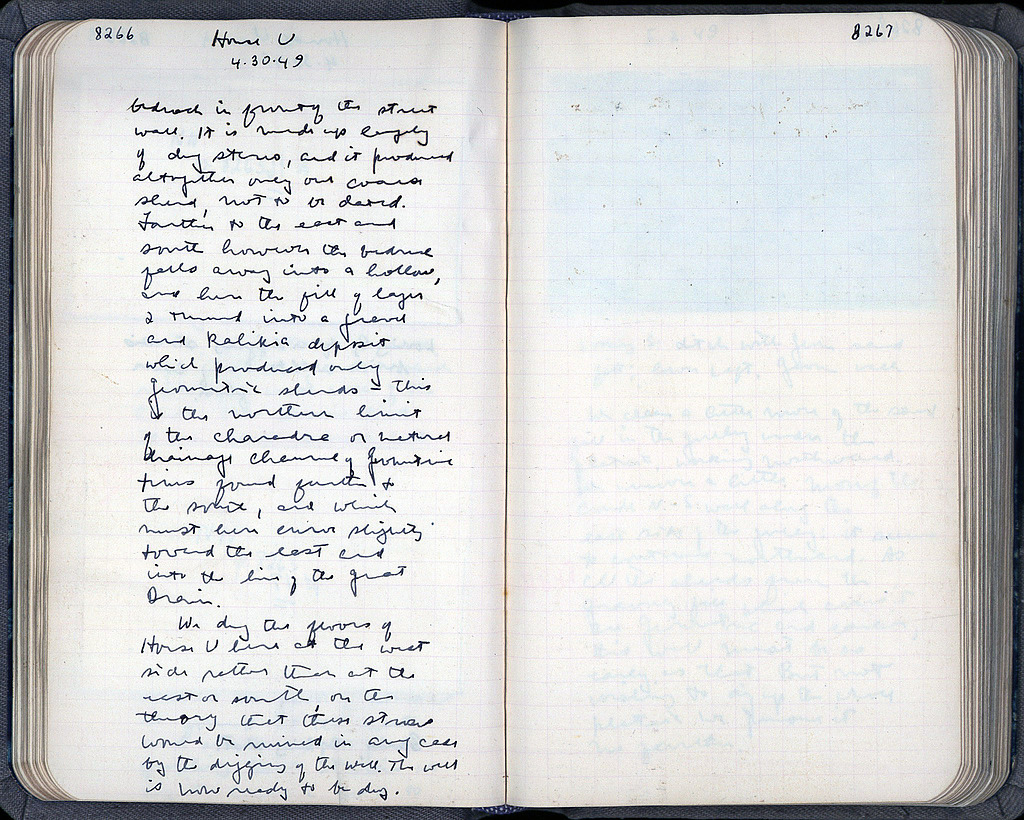 8266
House U
4.30.49
bedrock in front of the street
wall. It is made up largely
of dug stereo, and it produced
altogether only one coarse
sherd, not to be dated.
Farther to the east and
south however the bedrock
falls away into a hollow,
and here the fill of layer
2 turned into a gravel
and Kalikia deposit
which produced only
geometric sherds – this
is the northern limit
of the charadra or natural
drainage channel of geometric
times found farther to
the south, and which
must here curve slightly
toward the east and
into the line of the great
Drain.
We dug the floors of
House U here at the west
side rather than at the
east or south, on the
theory that these strosis
would be ruined in any case
by the digging of the well. The well
is now ready to be dug.
8267